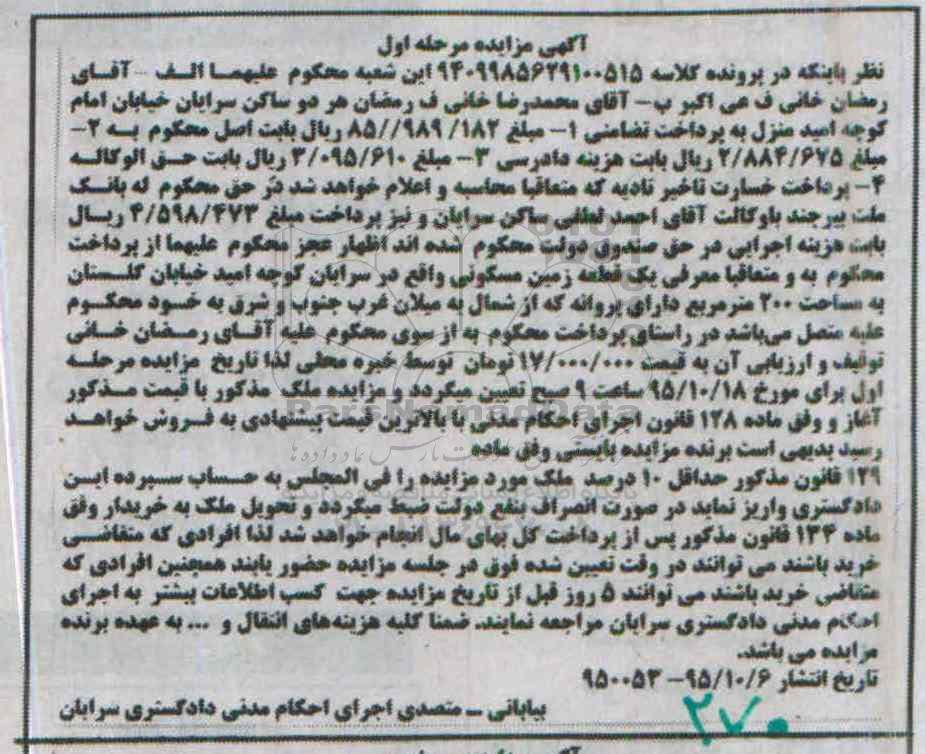 آگهی مزایده مرحله اول
نظر باینکه در پرونده کلاسه ۹۴۰۹۹۸۵۶۲۹۱۰۰۵۱۵ این شعبه محکوم علیهما الف - آقای
رمضان خانی ف عی اکبر ب- آقای محمدرضا خانی ف رمضان هر دو ساکن سرایان خیابان امام
کوچه امید منزل به پرداخت تضامنی ۱- مبلغ ۸۵//۹۸۹/۱۸۲ ریال بابت اصل محکوم به ۲-
مبلغ ۲/۸۸۴/۶۷۵ ریال بابت هزینه دادرسی ۳- مبلغ ۳/۰۹۵/۶۱۰ ریال بابت حق الوکاله
۴- پرداخت خسارت تاخیر تادیه که متعاقبا محاسبه و اعلام خواهد شد در حق محکوم له بانک
ملت بیرجند باوکالت آقای احمد لطفی ساکن سرایان و نیز پرداخت مبلغ ۴/۵۹۸/۴۷۳ ریال
بابت هزینه اجرایی در حق صندوق دولت محکوم شده اند اظهار عجز محکوم علیهما از پرداخت
محکوم به و متعاقبا معرفی یک قطعه زمین مسکونی واقع در سرایان کوچه امید خیابان گلستان
به مساحت ۲۰۰ مترمربع دارای پروانه که از شمال به میلان غرب جنوب و شرق به خود محکوم
علیه متصل می‌باشد در راستای پرداخت محکوم به از سوی محکوم علیه آقای رمضان خانی
توقیف و ارزیابی آن به قیمت ۱۷/۰۰۰/۰۰۰ تومان توسط خبره محلی لذا تاریخ مزایده مرحله
اول برای مورخ ۹۵/۱۰/۱۸ ساعت ۹ صبح تعیین میگردد و مزایده ملک مذکور با قیمت مذکور
آغاز و وفق ماده ۱۲۸ قانون اجرای احکام مدنی با بالاترین قیمت پیشنهادی به فروش خواهد
رسید بدیهی است برنده مزایده بایستی وفق ماده
۱۲۹ قانون مذکور حداقل ۱۰ درصد ملک مورد مزایده را فی المجلس به حساب سپرده این
دادگستری واریز نماید در صورت انصراف بنفع دولت ضبط میگردد و تحویل ملک به خریدار وفق
ماده ۱۳۴ قانون مذکور پس از پرداخت کل بهای مال انجام خواهد شد لذا افرادی که متقاضی
خرید باشند می توانند در وقت تعیین شده فوق در جلسه مزایده حضور یابند همچنین افرادی که
متقاضی خرید باشند می توانند ۵ روز قبل از تاریخ مزایده جهت کسب اطلاعات بیشتر به اجرای
احکام مدنی دادگستری سرایان مراجعه نمایند. ضمنا کلیه هزینه‌های انتقال و ... به عهده برنده
مزایده می باشد.
تاریخ انتشار ۹۵/۱۰/۶- ۹۵۰۰۵۳
بیابانی ــ متصدی اجرای احکام مدنی دادگستری سرایان
۲۷۰
ParsNamadData